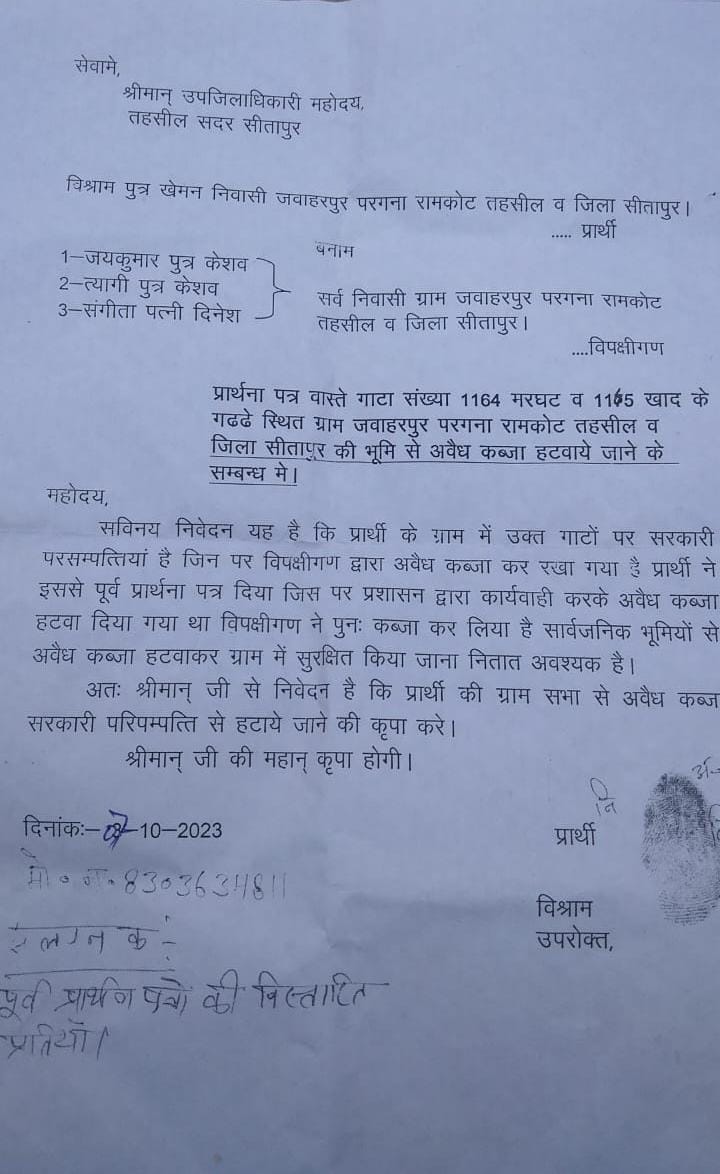 सेवामे,
श्रीमान् उपजिलाधिकारी महोदय,
तहसील सदर सीतापुर
विश्राम पुत्र खेमन निवासी जवाहरपुर परगना रामकोट तहसील व जिला सीतापुर।
..... प्रार्थी
बनाम
1–जयकुमार पुत्र केशव
2–त्यागी पुत्र केशव
3–संगीता पत्नी दिनेश
सर्व निवासी ग्राम जवाहरपुर परगना रामकोट
तहसील व जिला सीतापुर।
....विपक्षीगण
प्रार्थना पत्र वास्ते गाटा संख्या 1164 मरघट व 1165 खाद के
गढढे स्थित ग्राम जवाहरपुर परगना रामकोट तहसील व
जिला सीतापुर की भूमि से अवैध कब्जा हटवाये जाने के
सम्बन्ध मे।
महोदय,
सविनय निवेदन यह है कि प्रार्थी के ग्राम में उक्त गाटों पर सरकारी
परसम्पत्तियां है जिन पर विपक्षीगण द्वारा अवैध कब्जा कर रखा गया है प्रार्थी ने
इससे पूर्व प्रार्थना पत्र दिया जिस पर प्रशासन द्वारा कार्यवाही करके अवैध कब्जा
हटवा दिया गया था विपक्षीगण ने पुनः कब्जा कर लिया है सार्वजनिक भूमियों से
अवैध कब्जा हटवाकर ग्राम में सुरक्षित किया जाना नितात अवश्यक है।
अतः श्रीमान् जी से निवेदन है कि प्रार्थी की ग्राम सभा से अवैध कब्ज
सरकारी परिपम्पत्ति से हटाये जाने की कृपा करे।
श्रीमान् जी की महान् कृपा होगी।
नि
दिनांकः–07–10–2023
प्रार्थी
मो० न० 8303634811
विश्राम
उपरोक्त,
संलग्नक :-
पूर्व प्रार्थना पत्रो की विस्तारित
प्रतियाँ।